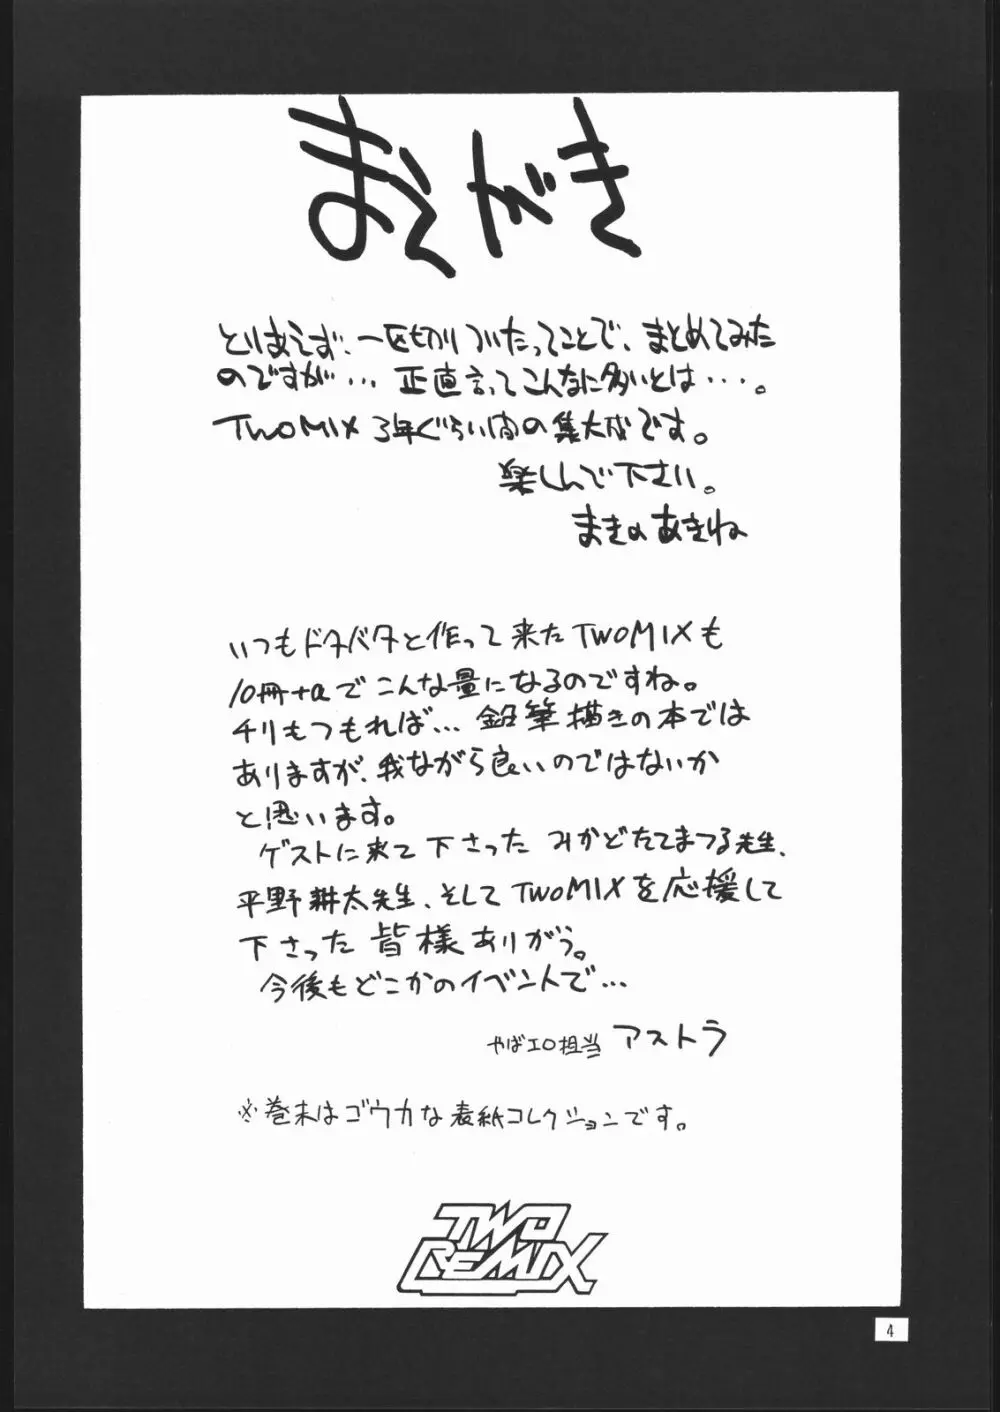 まえがき
とりあえず、一区切りついたってことで、まとめてみた
のですが… 正直言ってこんなに多いとは…。
TWOMIX 3年ぐらい間の集大成です。
楽しんで下さい。
まきのあきね
いつもドタバタと作って来たTWOMIXも
10冊+αでこんな量になるのですね。
チリもつもれば… 鉛筆描きの本では
ありますが、我ながら良いのではないか
と思います。
ゲストに来て下さった みかどたてまつる先生、
平野耕太先生、そしてTWOMIXを応援して
下さった皆様ありがとう。
今後もどこかのイベントで…
やばエロ担当 アストラ
※巻末はゴウカな表紙コレクションです。
TWO
REMIX
4